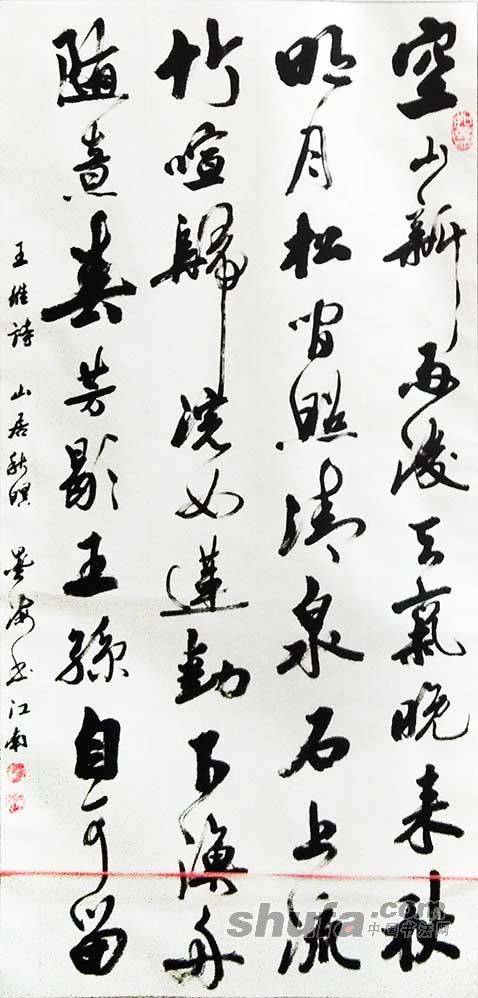 空山新雨後天氣晚来秋
明月松間照清泉石上流
竹喧歸浣女蓮動下漁舟
随意春芳歇王孫自可留
王維詩 山居秋暝 墨海书江南
shufa.com
中国书法网